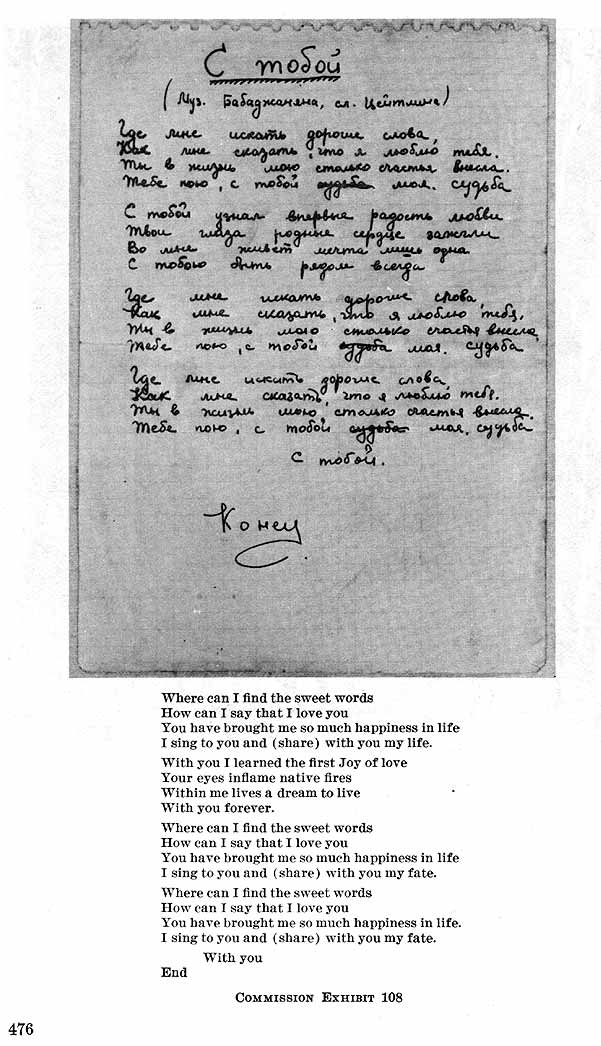 С тобой
(Муз. Бабаджаняна, сл. Цейтлина)
Где мне искать дорогие слова,
Как мне сказать, что я люблю тебя.
Ты в жизнь мою столько счастья внесла.
Тебе пою, с тобой судьба моя. судьба
С тобой узнал впервые радость любви
Твои глаза родные сердце зажгли
Во мне живёт мечта лишь одна
С тобою быть рядом всегда
Где мне искать дорогие слова,
Как мне сказать, что я люблю тебя,
Ты в жизнь мою столько счастья внесла,
Тебе пою, с тобой судьба моя. судьба
Где мне искать дорогие слова,
Как мне сказать, что я люблю тебя.
Ты в жизнь мою, столько счастья внесла.
Тебе пою, с тобой судьба моя. судьба
С тобой.
Конец
Where can I find the sweet words
How can I say that I love you
You have brought me so much happiness in life
I sing to you and (share) with you my life.
With you I learned the first Joy of love
Your eyes inflame native fires
Within me lives a dream to live
With you forever.
Where can I find the sweet words
How can I say that I love you
You have brought me so much happiness in life
I sing to you and (share) with you my fate.
Where can I find the sweet words
How can I say that I love you
You have brought me so much happiness in life.
I sing to you and (share) with you my fate.
With you
End
COMMISSION EXHIBIT 108
476